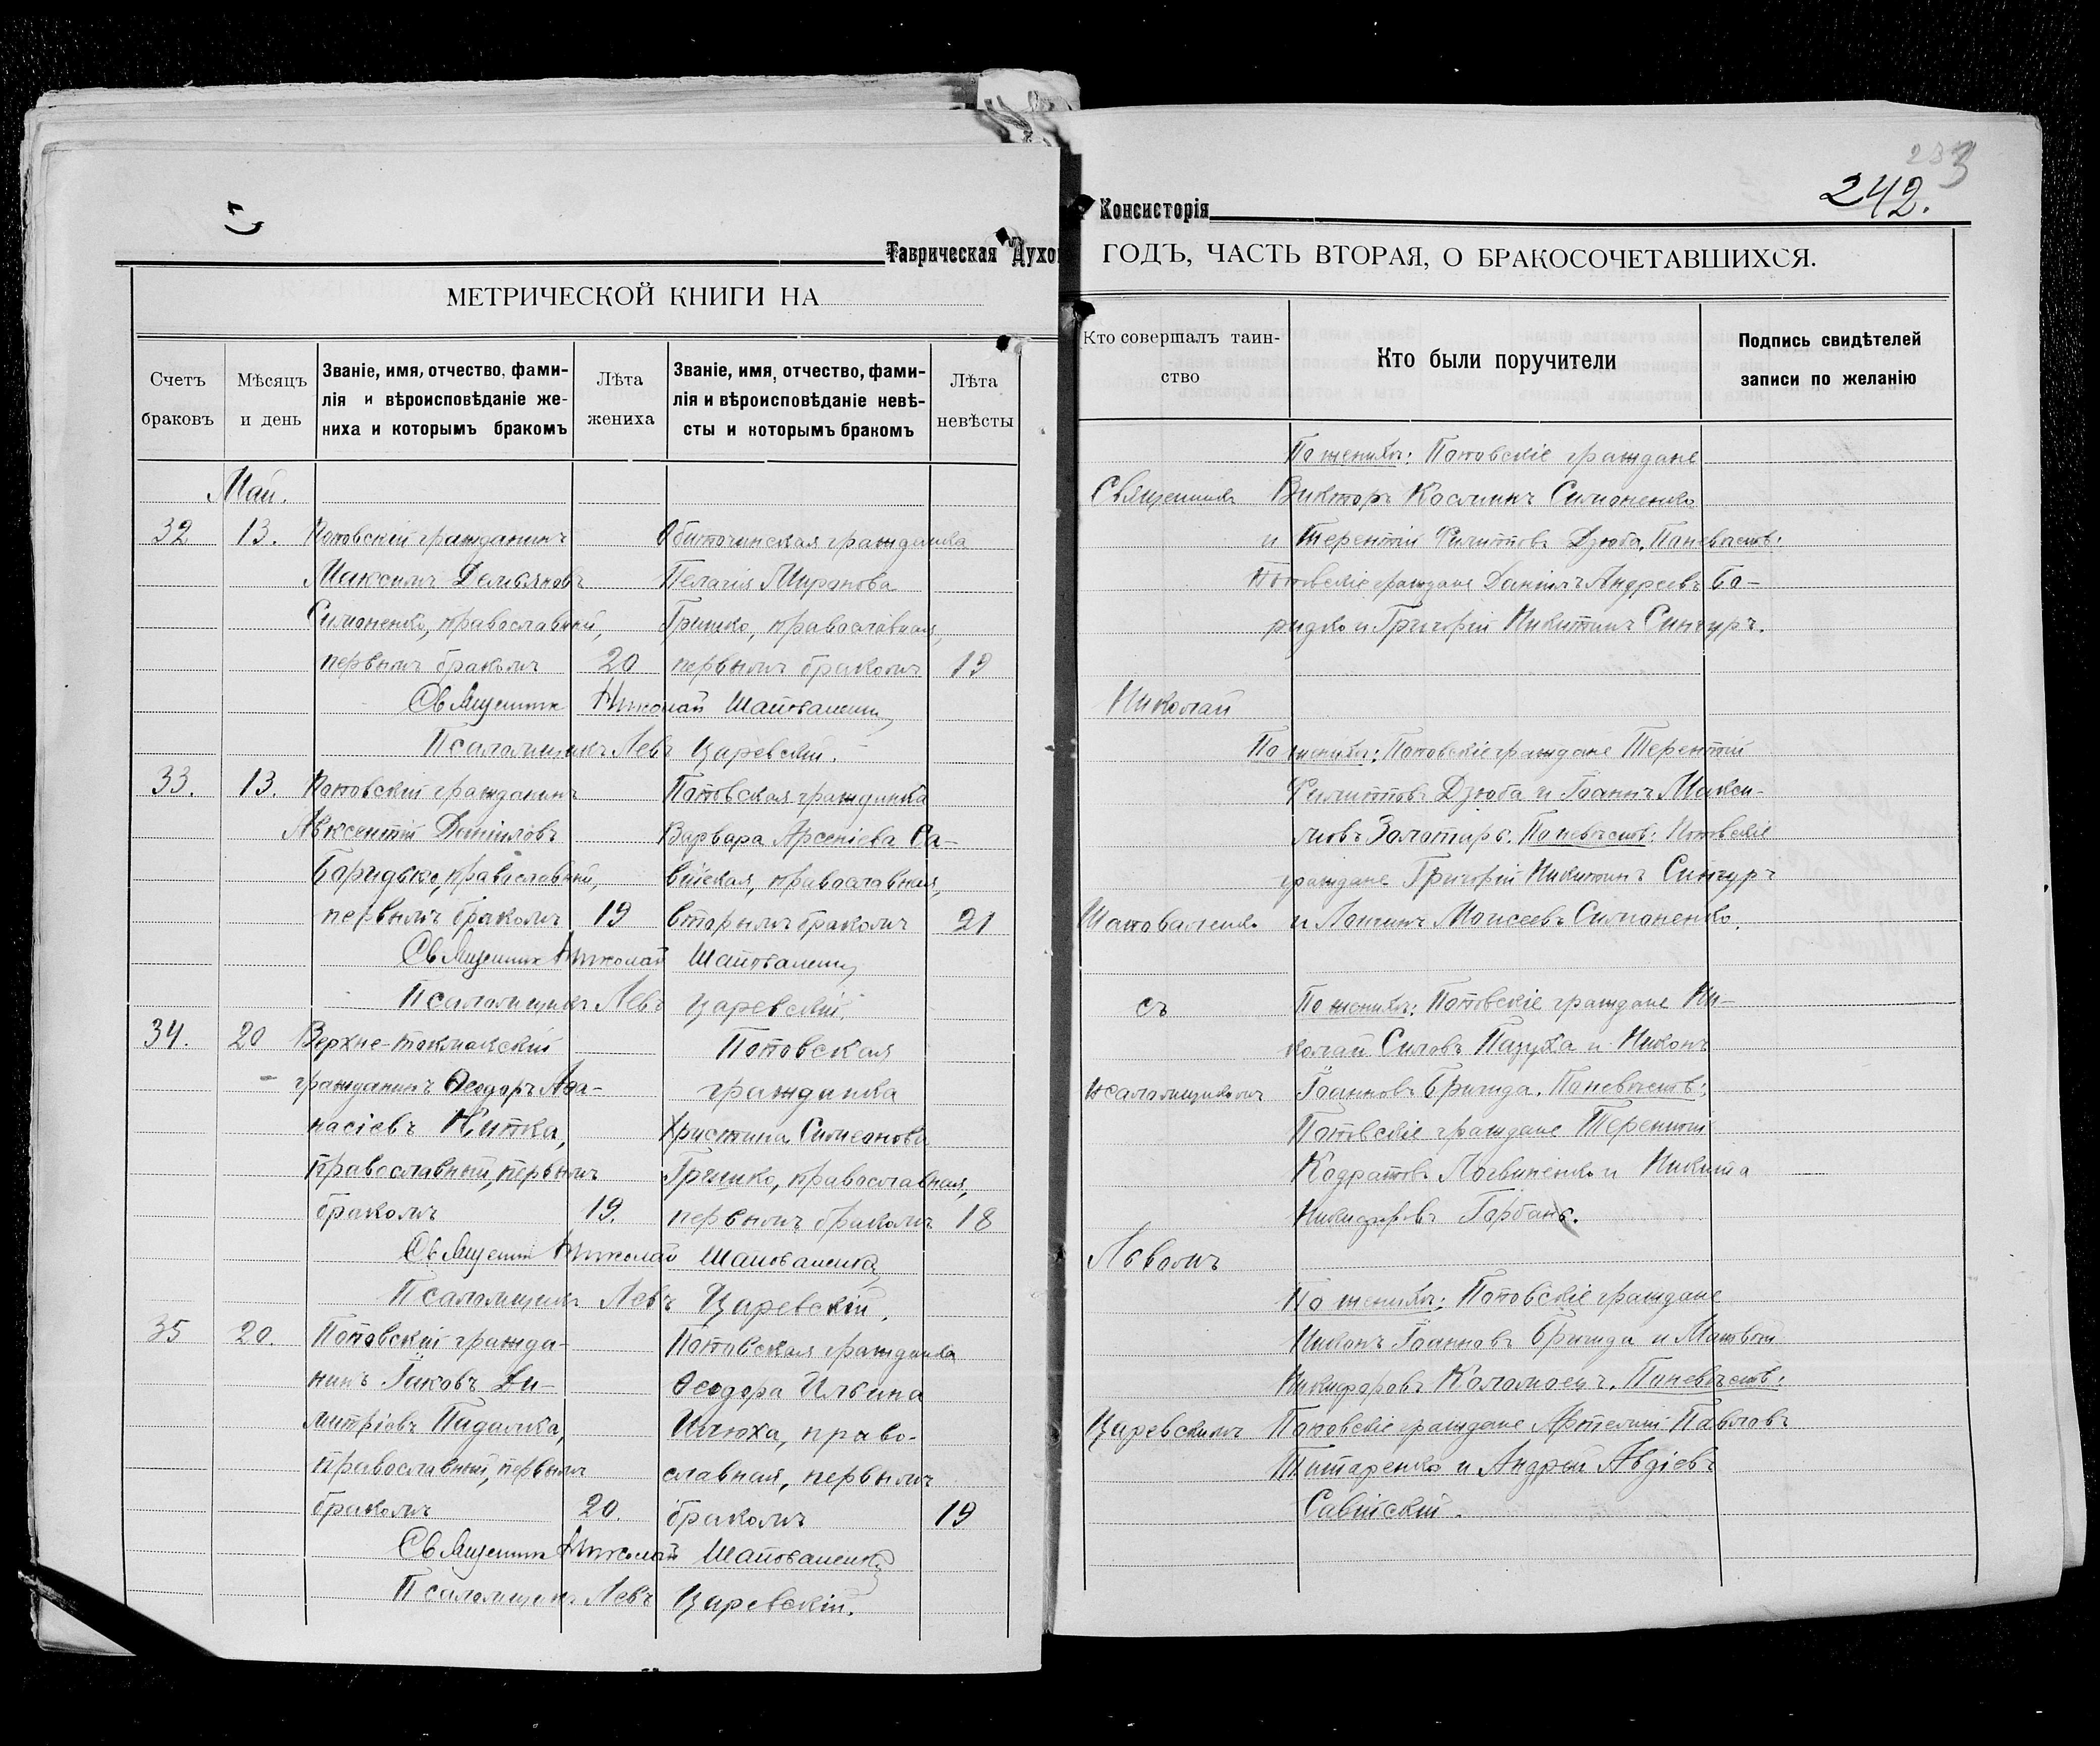 233
242.
Таврическая Духо
Консисторія
МЕТРИЧЕСКОЙ КНИГИ НА
ГОДЪ, ЧАСТЬ ВТОРАЯ, О БРАКОСОЧЕТАВШИХСЯ.
Счетъ браковъ
Мѣсяцъ и день
Званіе, имя, отчество, фами-
лія и вѣроисповѣданіе же-
ниха и которымъ бракомъ
Лѣта жениха
Званіе, имя, отчество, фами-
лія и вѣроисповѣданіе невѣ-
сты и которымъ бракомъ
Лѣта невѣсты
Кто совершалъ таин-
ство
Кто были поручители
Подпись свидѣтелей
записи по желанію
Май.
32
13.
Поповскій гражданинъ
Максимъ Демьяновъ
Симоненко, православный,
первымъ бракомъ
20
Обиточинская гражданка
Пелагія Миронова
Гришко, православная,
первымъ бракомъ
19
Священникъ Николай Шаповаленко
Псаломщикъ Левъ Царевскій.
33.
13.
Поповскій гражданинъ
Авксентій Даніиловъ
Боридько, православный,
первымъ бракомъ
19
Поповская гражданка
Варвара Арсеніева Са-
війская, православная,
вторымъ бракомъ
21
Священникъ Николай Шаповаленко
Псаломщикъ Левъ Царевскій.
34.
20
Верхне-токмакскій
гражданинъ Ѳеодоръ Аѳа-
насіевъ Нитка,
православный, первымъ
бракомъ
19.
Поповская
гражданка
Христина Симеонова
Гришко, православная,
первымъ бракомъ
18
Священникъ Николай Шаповаленко
Псаломщикъ Левъ Царевскій.
35
20.
Поповскій гражда-
нинъ Іаковъ Ди-
митріевъ Пидалка,
православный, первымъ
бракомъ
20.
Поповская гражданка
Ѳеодора Ильина
Илюха, право-
славная, первымъ
бракомъ
19
Священникъ Николай Шаповаленко
Псаломщикъ Левъ Царевскій.
Священникъ
Николай
Шаповаленко
съ
псаломщикомъ
Львомъ
Царевскимъ
По женихѣ: Поповскіе граждане
Викторъ Косминъ Симоненко
и Терентій Филипповъ Дзюба. По невѣстѣ:
Поповскіе граждане Даніилъ Андреевъ Бо-
ридко и Григорій Никитинъ Сингуръ.
По женихѣ: Поповскіе граждане Терентій
Филипповъ Дзюба и Іоаннъ Макси-
мовъ Золотарь. По невѣстѣ: Поповскіе
граждане Григорій Никитинъ Сингуръ
и Логинъ Моисеевъ Симоненко.
По женихѣ: Поповскіе граждане Ни-
колай Силовъ Пазуха и Никонъ
Іоанновъ Брижда. По невѣстѣ:
Поповскіе граждане Терентій
Кодратовъ Логвиненко и Никита
Никифоровъ Горбань.
По женихѣ: Поповскіе граждане
Никонъ Іоанновъ Брижда и Матвѣй
Никифоровъ Коломоецъ. По невѣстѣ:
Поповскіе граждане Артемій Павловъ
Титаренко и Андрей Авдіевъ
Савійскій.